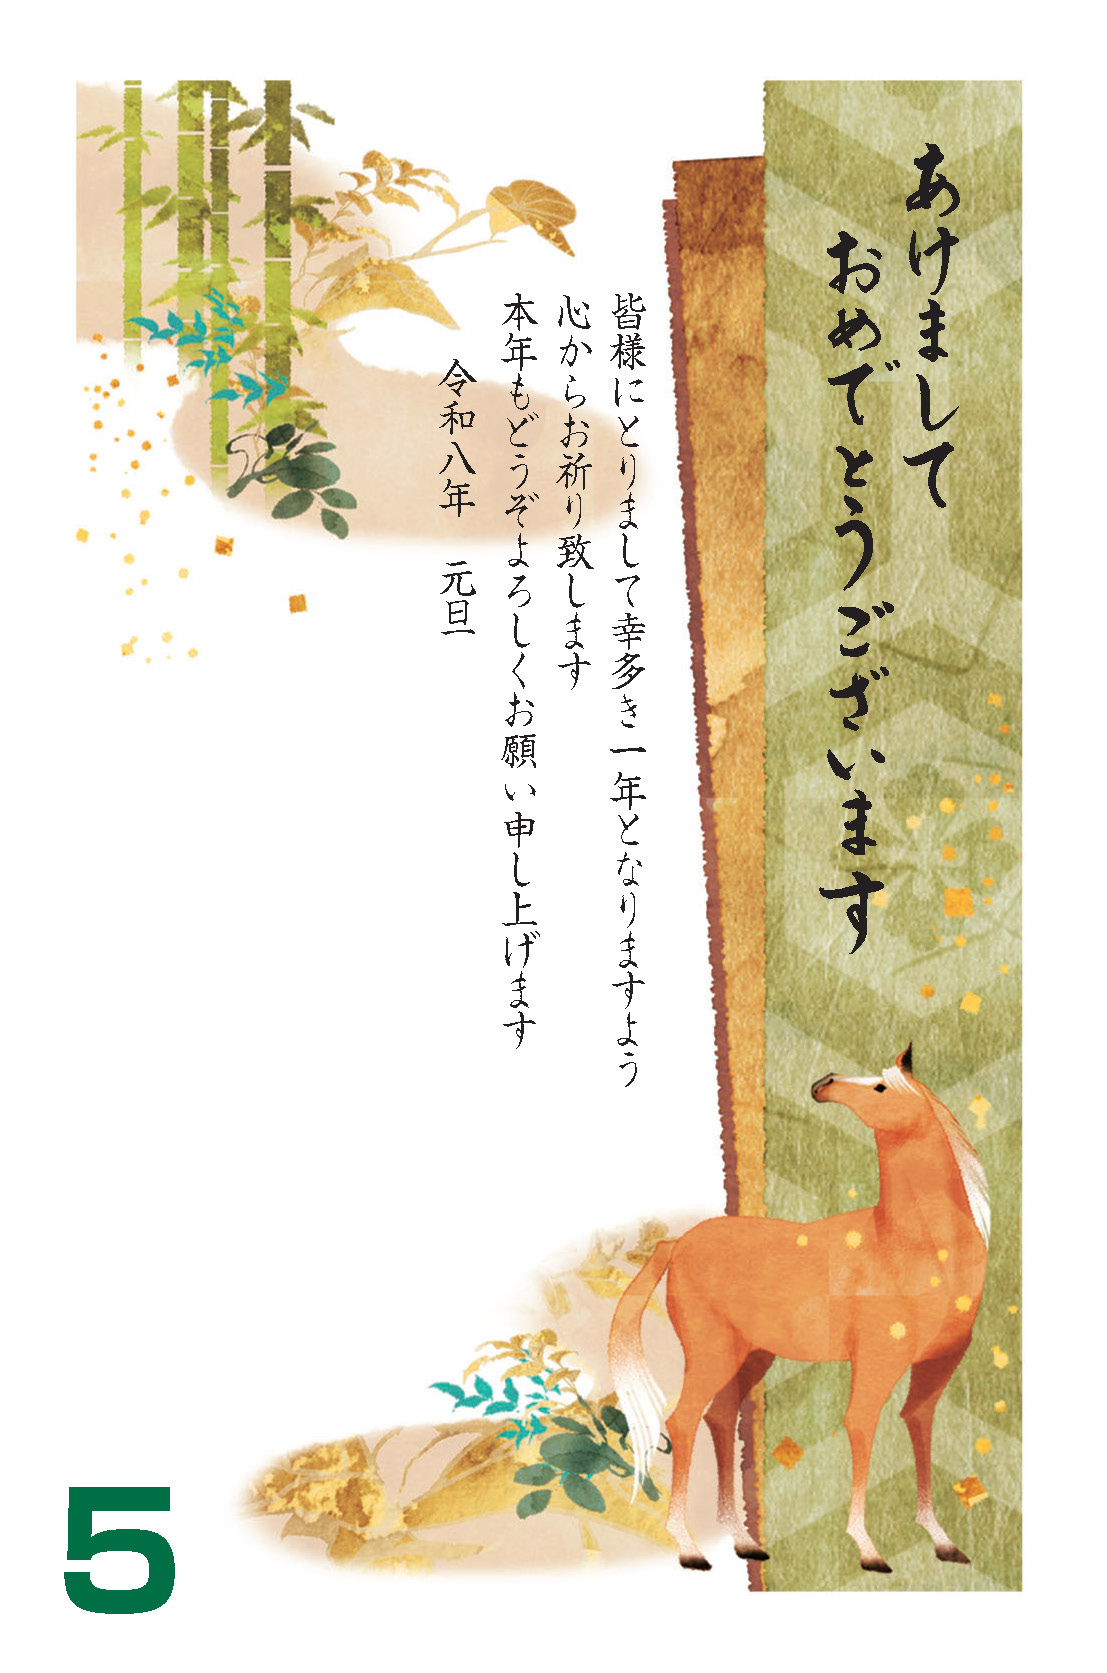 あけまして
おめでとうございます
皆様にとりまして幸多き一年となりますよう
心からお祈り致します
本年もどうぞよろしくお願い申し上げます
令和八年　元旦
5